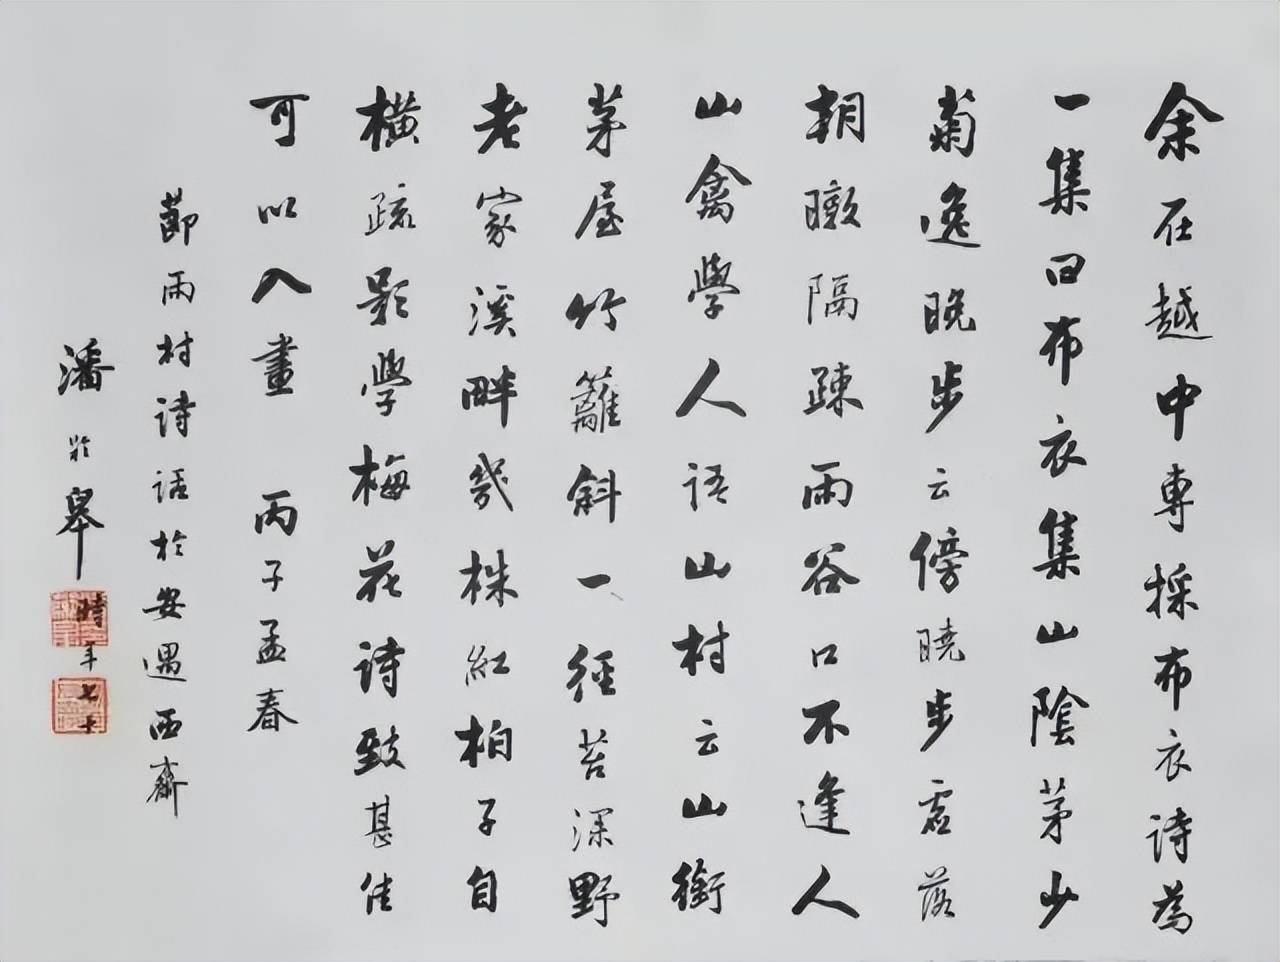 余在越中專採布衣詩為
一集曰布衣集山陰茅少
菊逸晚步云傍曉步虛落
朝暾隔疎雨谷口不逢人
山禽學人語山村云山銜
茅屋竹籬斜一徑苔深野
老家溪畔幾株紅柏子自
橫疏影學梅花詩致甚佳
可以入畫 丙子孟春
節雨村詩話於安遇西齋
潘於皋時年七十